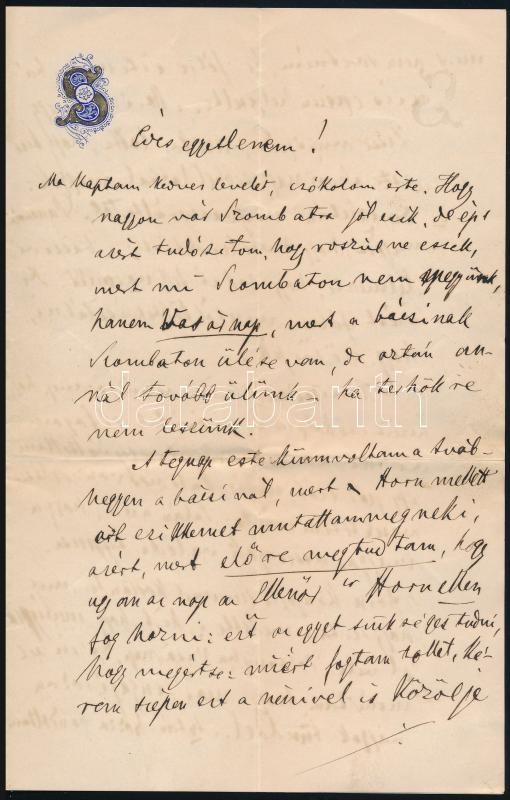 Édes egyetlenem!
Ma kaptam kedves levelét, csókolom érte. Hogy
nagyon vár Szombatra jól esik, de épp
azért tudósítom, hogy roszul ne essék,
mert mi Szombaton nem megyünk,
hanem Vasárnap, mert a bácsinak
Szombaton ülése van, de aztán an-
nál tovább ülünk – ha terhökre
nem leszünk.
A tegnap este künn voltam a Sváb-
hegyen a bácsinál, mert a Horn mellett
írt czikkemet mutattam meg neki,
azért, mert előre megtudtam, hogy
ugyan az nap az Ellenőr is Horn ellen
fog hozni: ezt az egyet szükséges tudni,
hogy megértse: miért fogtam tollat, ké-
rem szépen ezt a nénivel is közölje
darabanth